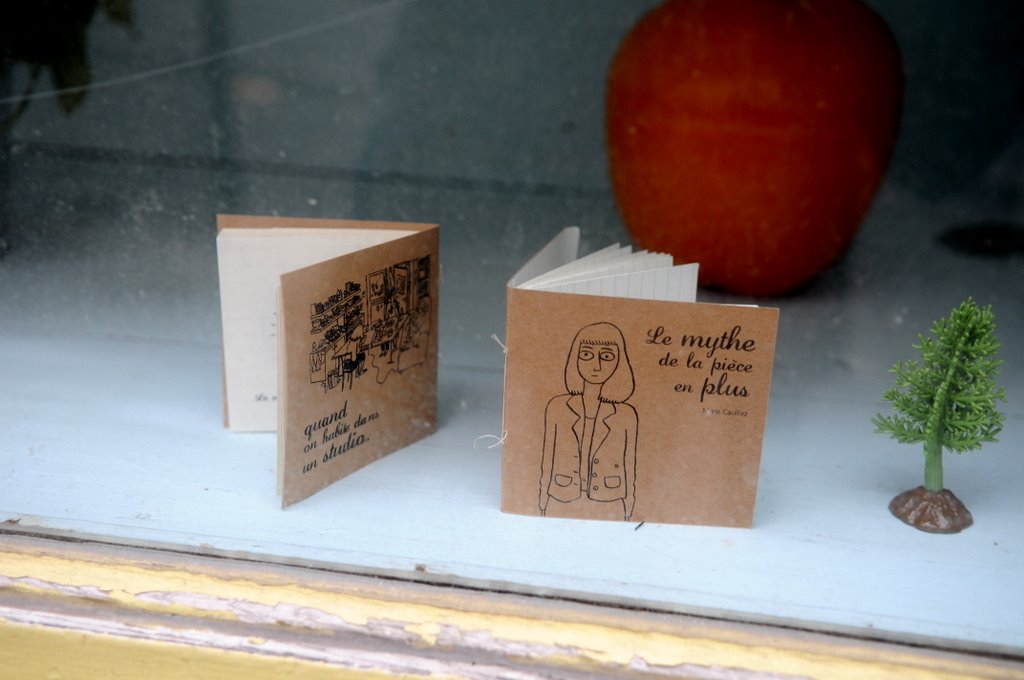 quand
on habite dans
un studio.
Le mythe
de la pièce
en plus